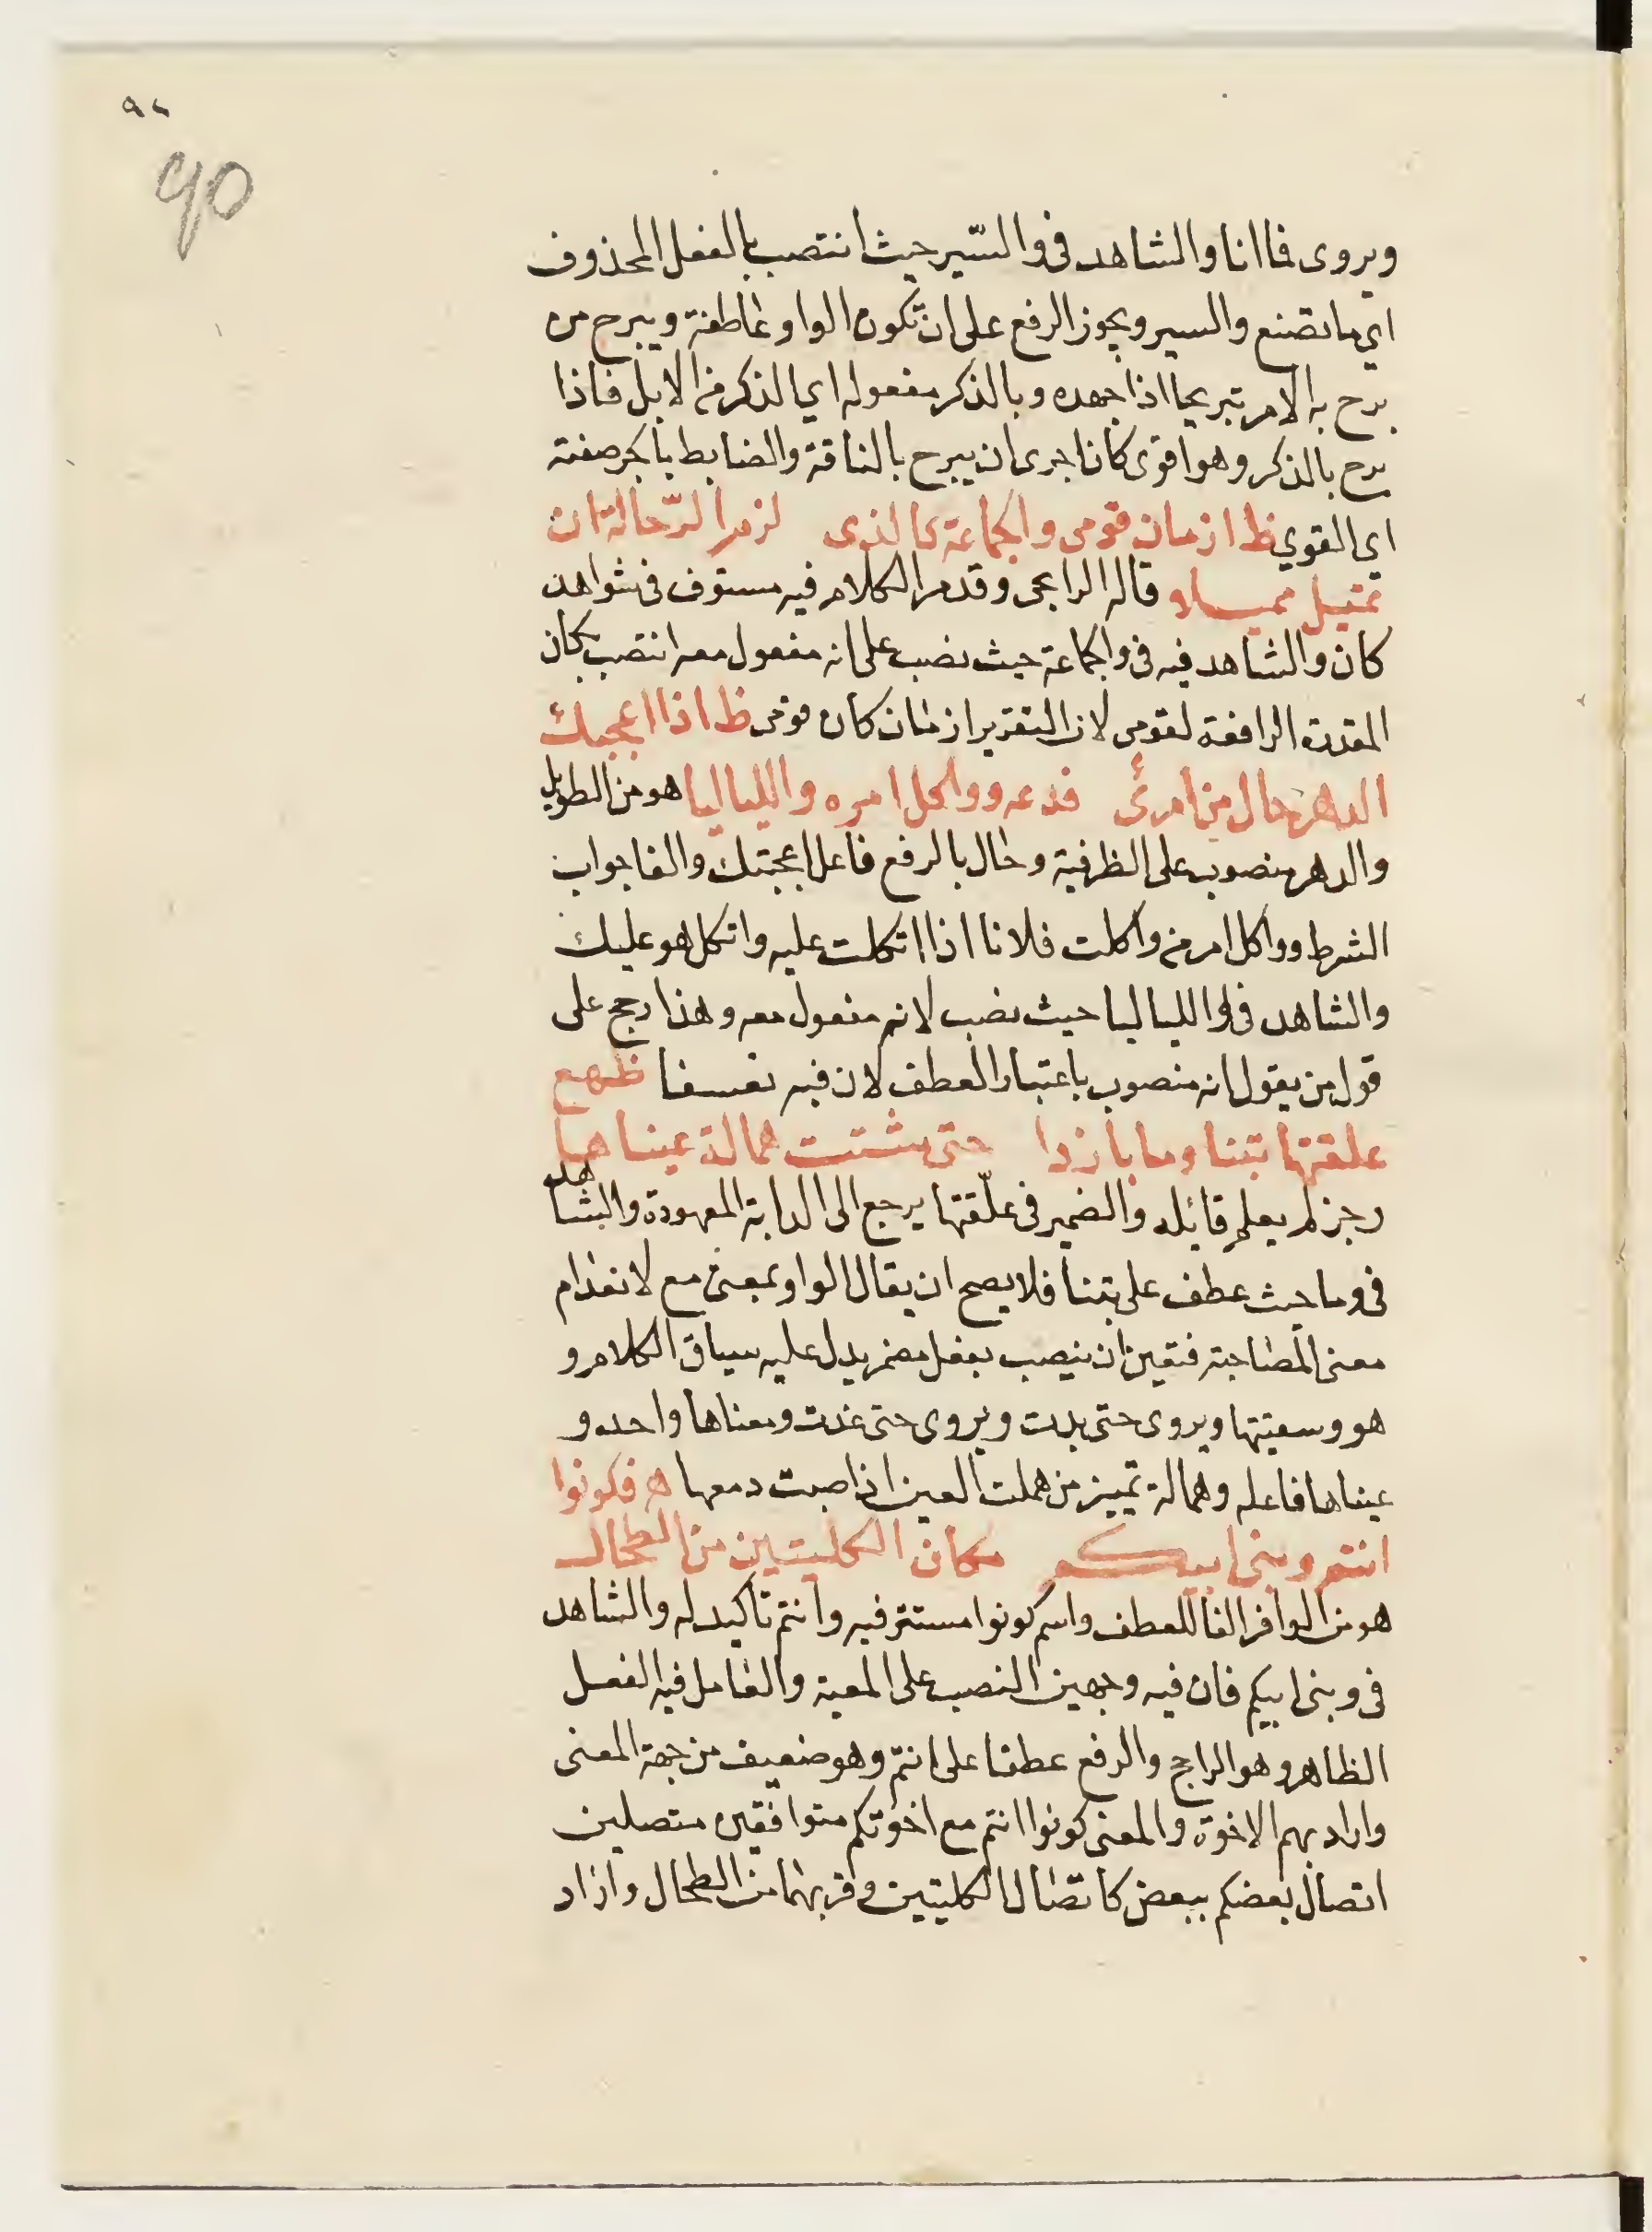 ٩٢
90
ويروى فاانا والشاهد فى والسّير حيث انتصب بالفعل المحذوف
اي ما تصنع والسير ويجوز الرفع على ان تكون الواو عاطفة ويبرح من
برح به الامر تبريحا اذا جهده وبالذكر مفعوله اي الذكر من الابل فاذا
برح بالذكر وهو اقوى كان اجرى ان يبرح بالناقة والضابط بالجر صفته
اى القوي ظ ازمان قومى والجماعة كالذى لزم الرّحالة ان
تميل مميلا قاله الراعى وقد مر الكلام فيه مستوف فى شواهد
كان والشاهد فيه فى والجماعة حيث نصب على انه مفعول معه انتصب بكان
المقدرة الرافعة لقومى لان التقدير ازمان كان قومى ظ اذا اعجبك
الدهر حال من امرئ فدعه وواكل امره واللياليا هو من الطويل
والدهر منصوب على الظرفية وحال بالرفع فاعل اعجبتك والفا جواب
الشرط وواكل امر من واكلت فلانا اذا اتكلت عليه واتكل هو عليك
والشاهد فى واللياليا حيث نصب لانه مفعول معه وهذا رجح على
قول من يقول انه منصوب باعتبار العطف لان فيه تعسفا ظهع
علفتها تبنا وما باردا حتى شتت همالة عيناها
رجز لم يعلم قائله والضمير فى علّفتها يرجع الى الدابة المعهودة والشاهد
فى وما حيث عطف على تبنا فلا يصح ان يقال الواو بمعنى مع لانعدام
معنى المصاحبة فتعين ان ينصب بفعل مضمر يدل عليه سياق الكلام و
هو وسقيتها ويروى حتى بدت ويروى حتى غدت ومعناها واحد و
عيناها فاعله وهمالة تمييز من هملت العين اذا صبت دمعها ه فكونوا
انتم وبنى ابيكم مكان الكليتين من الطحال
هو من الوافر الفا للعطف واسم كونوا مستتر فيه وانتم تاكيد له والشاهد
فى وبنى ابيكم فان فيه وجهين النصب على المعية والعامل فيه الفعل
الظاهر وهو الراجح والرفع عطفا على انتم وهو ضعيف من جهة المعنى
واراد بهم الاخوة والمعنى كونوا انتم مع اخوتكم متوافقين متصلين
اتصال بعضكم ببعض كاتصال الكليتين وقربهما من الطحال واراد